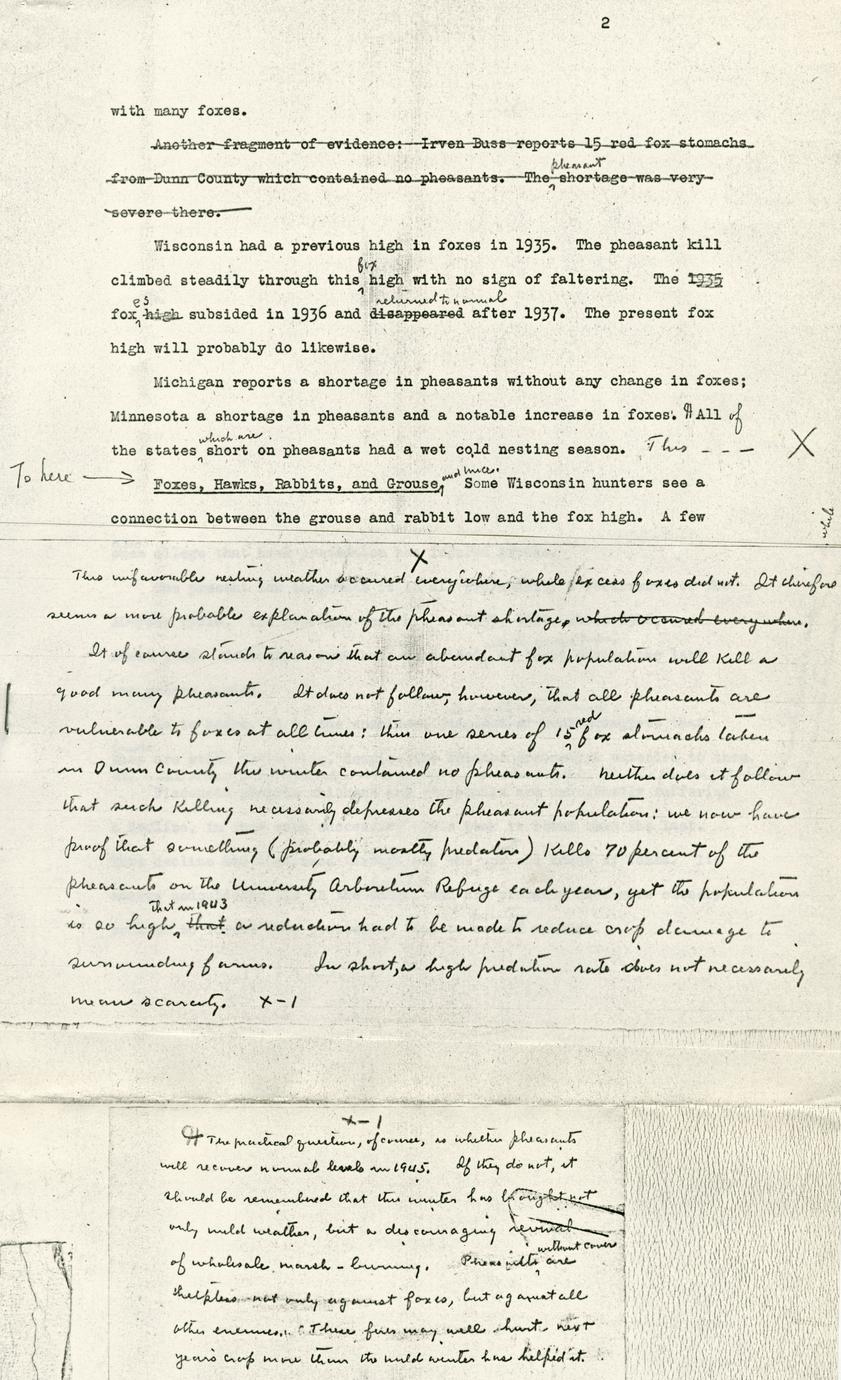 2
with many foxes.
Another fragment of evidence: Irven Buss reports 15 red fox stomachs
pheasant
from Dunn County which contained no pheasants. The shortage was very
severe there.
Wisconsin had a previous high in foxes in 1935. The pheasant kill
fox
climbed steadily through this high with no sign of faltering. The 1935
es returned to normal
fox high subsided in 1936 and disappeared after 1937. The present fox
high will probably do likewise.
Michigan reports a shortage in pheasants without any change in foxes;
Minnesota a shortage in pheasants and a notable increase in foxes. ¶ All of
which are
the states short on pheasants had a wet cold nesting season. This - - - X
To here → and mice.
Foxes, Hawks, Rabbits, and Grouse Some Wisconsin hunters see a
connection between the grouse and rabbit low and the fox high. A few
while
X
This unfavorable nesting weather occured everywhere, while excess foxes did not. It therefore
seems a more probable explanation of the pheasant shortage, which occured everywhere.
It of course stands to reason that an abundant fox population will kill a
good many pheasants. It does not follow, however, that all pheasants are
red
vulnerable to foxes at all times: thus one series of 15 fox stomachs taken
in Dunn County this winter contained no pheasants. Neither does it follow
that such killing necessarily depresses the pheasant population: we now have
proof that something (probably mostly predators) kills 70 percent of the
pheasants on the University Arboretum Refuge each year, yet the population
that in 1943
is so high, that a reduction had to be made to reduce crop damage to
surrounding farms. In short, a high predation rate does not necessarily
mean scarcity. X-1
X-1
¶ The practical question, of course, is whether pheasants
will recover normal levels in 1945. If they do not, it
should be remembered that this winter has brought not
only mild weather, but a discouraging revival
without cover
of wholesale marsh-burning. Pheasants are
helpless not only against foxes, but against all
other enemies. These fires may well hurt next
year's crop more than the mild winter has helped it.